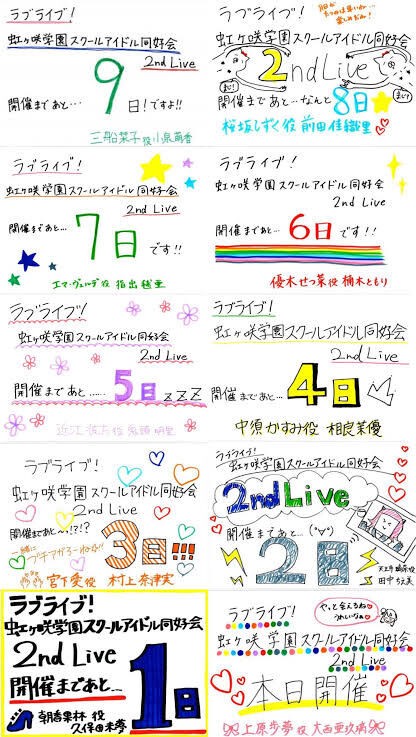 ラブライブ!
虹ヶ咲学園スクールアイドル同好会
2nd Live
開催まであと… 9日!ですよ!!
三船栞子役 小泉萌香
ラブライブ!
虹ヶ咲学園スクールアイドル同好会
2nd Live
開催まであと…なんと8日
桜坂しずく役 前田佳織里
ラブライブ!
虹ヶ咲学園スクールアイドル同好会
2nd Live
開催まであと… 7日です!!
エマ・ヴェルデ役 指出毬亜
ラブライブ!
虹ヶ咲学園スクールアイドル同好会
2nd Live
開催まであと… 6日です!!
優木せつ菜役 楠木ともり
ラブライブ!
虹ヶ咲学園スクールアイドル同好会
2nd Live
開催まであと…… 5日 zzz
近江彼方役 鬼頭明里
ラブライブ!
虹ヶ咲学園スクールアイドル同好会
2nd Live
開催まであと… 4日
中須かすみ役 相良茉優
ラブライブ!
虹ヶ咲学園スクールアイドル同好会
2nd Live
開催まであと…!?!?
3日!!!
宮下愛役 村上奈津実
ラブライブ!
虹ヶ咲学園スクールアイドル同好会
2nd Live
開催まであと…
2日
天王寺璃奈役
田中ちえ美
ラブライブ!
虹ヶ咲学園スクールアイドル同好会
2nd Live
開催まであと…
1日
朝香果林 役
久保田未夢
ラブライブ!
やっと会えるね
うれしいなぁ
虹ヶ咲学園スクールアイドル同好会
2nd Live
本日開催
上原歩夢役 大西亜玖璃